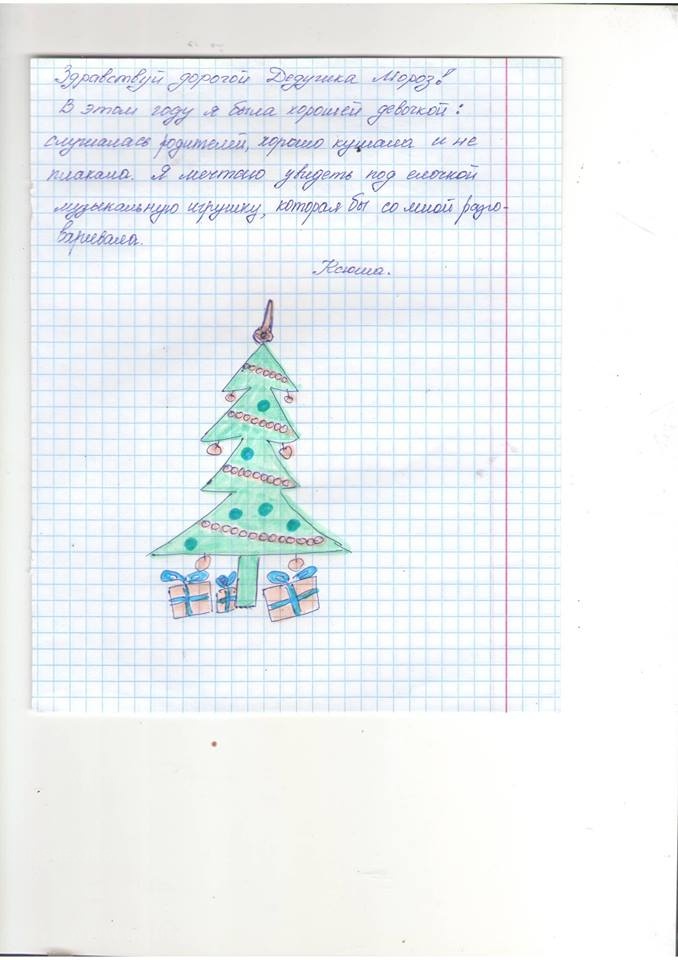 Здравствуй дорогой Дедушка Мороз!
В этом году я была хорошей девочкой:
слушалась родителей, хорошо кушала и не
плакала. Я мечтаю увидеть под елочкой
музыкальную игрушку, которая бы со мной разго-
варивала.
Ксюша.